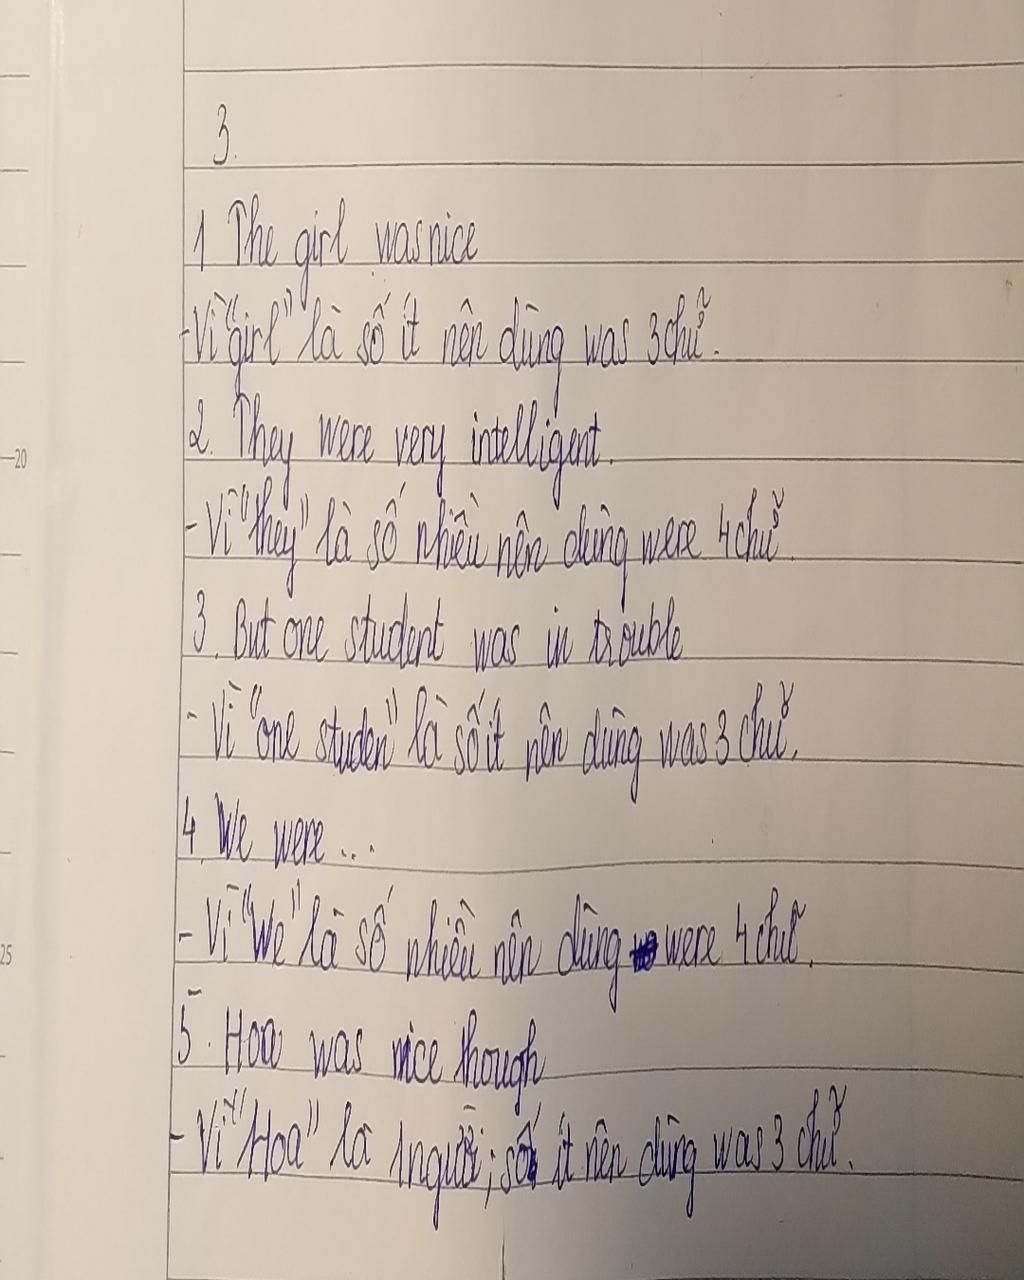 3.
1 The girl was nice
-Vì "girl" là số ít nên dùng was 3 chữ.
2. They were very intelligent.
- Vì "they" là số nhiều nên dùng were 4 chữ.
3. But one student was in trouble
- Vì "one studen" là số ít nên dùng was 3 chữ.
4. We were...
- Vì "We" là số nhiều nên dùng were 4 chữ.
5. Hoa was nice though
- Vì "Hoa" là 1 người; số ít nên dùng was 3 chữ.
20
25